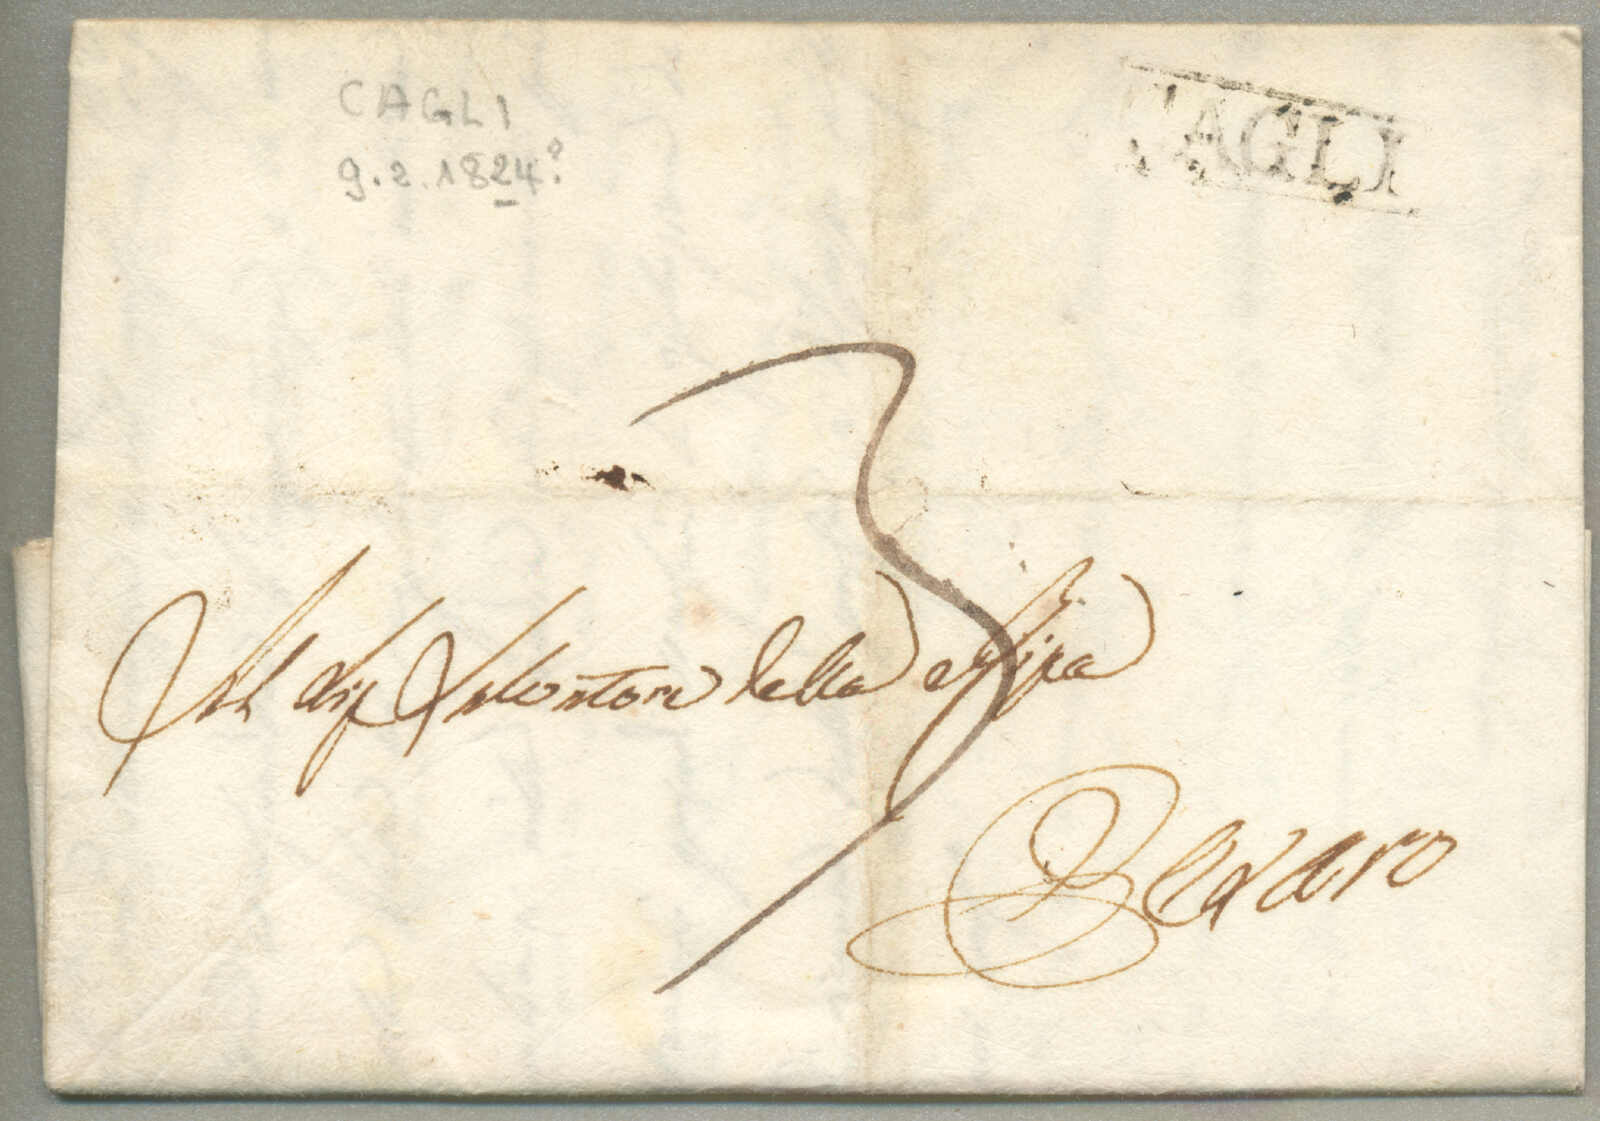 CAGLI
9.2.1824?
CAGLI
3
Al Sig Salvatore della Ripa
Pesaro